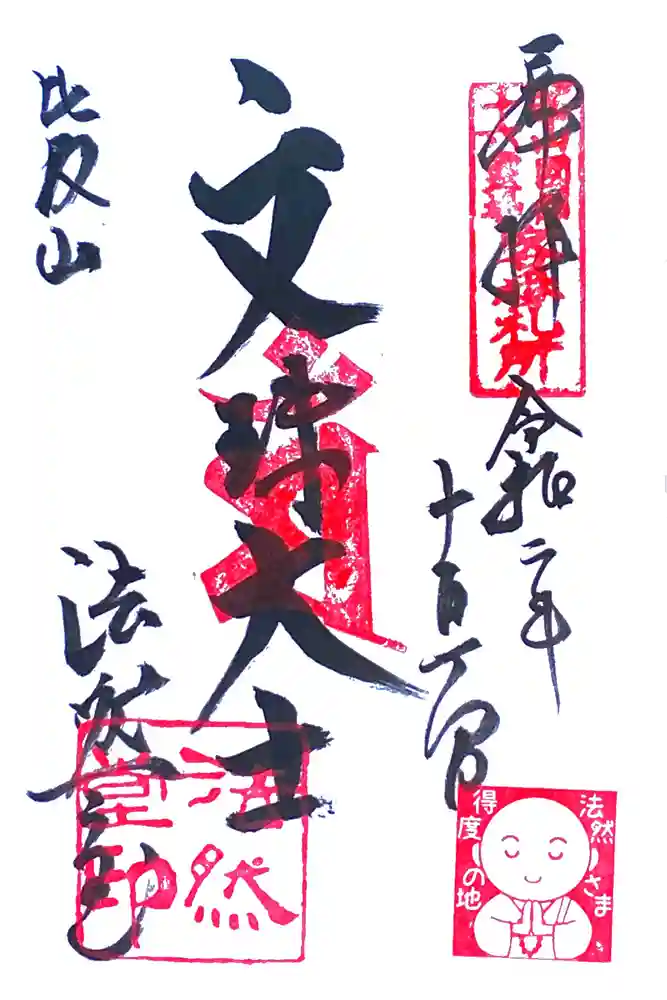 奉拝
令和二年
文殊大士
比叡山
法然堂
法然堂印
法然さま
得度の地